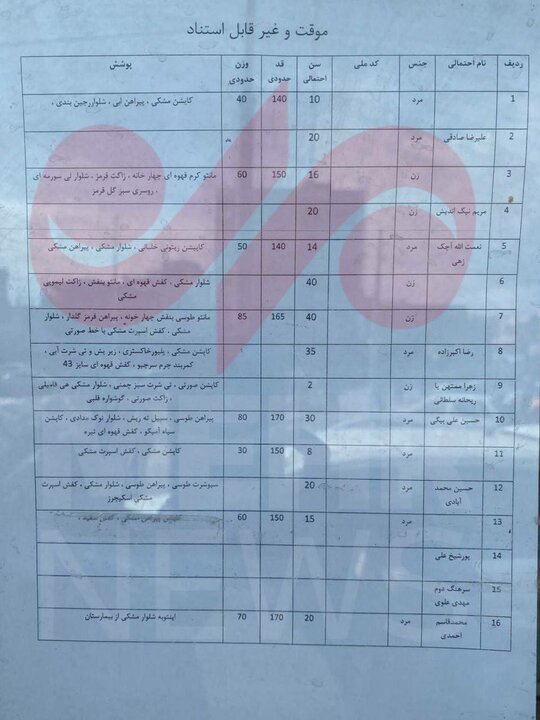 موقت و غیر قابل استناد
ردیف نام احتمالی جنس کد ملی سن احتمالی قد حدودی وزن حدودی پوشش
1 مرد 10 140 40 کاپشن مشکی ، پیراهن آبی ، شلوارجین بندی ،
2 علیرضا صادقی مرد 20
3 زن 16 150 60 مانتو کرم قهوه ای چهار خانه ، ژاکت قرمز ، شلوار لی سورمه ای
، روسری سبز گل قرمز
4 مریم نیک اندیش زن 20
5 نعمت الله آچک مرد 14 140 50 کاپیشن زیتونی خلبانی ، شلوار مشکی ، پیراهن مشکی
زهی
6 زن 40 شلوار مشکی ، کفش قهوه ای ، مانتو بنفش ، ژاکت لیمویی
مشکی
7 زن 40 165 85 مانتو طوسی بنفش چهار خونه ، پیراهن قرمز گلدار ، شلوار
مشکی ، کفش اسپرت مشکی با خط صورتی
8 رضا اکبرزاده مرد 35 کاپشن مشکی ، پلیورخاکستری ، زیر پش و تی شرت آبی ،
کمربند چرم سرجیو ، کفش قهوه ای سایز 43
9 زهرا ممتهن یا زن 2 کاپشن صورتی ، تی شرت سبز چمنی ، شلوار مشکی
ریحانه سلطانی ، ژاکت صورتی ، گوشواره قلبی
10 حسین علی بیگی مرد 30 170 80 پیراهن طوسی ، سیبیل ته ریش ، شلوار نوک مدادی ، کاپشن
سیاه آمیکو ، کفش قهوه ای تیره
11 مرد 8 150 30 کاپشن مشکی ، کفش اسپرت مشکی
12 حسین محمد مرد 20 سیوشرت طوسی ، پیراهن طوسی ، شلوار مشکی ، کفش اسپرت
آبادی مشکی اسکیچرز
13 مرد 15 150 60 پیراهن مشکی ، کفش سفید ،
14 پورشیخ علی
15 سرهنگ دوم
مهدی علوی
16 محمدقاسم مرد 20 170 70 اینتوبه شلوار مشکی از بیمارستان
احمدی
NEWS